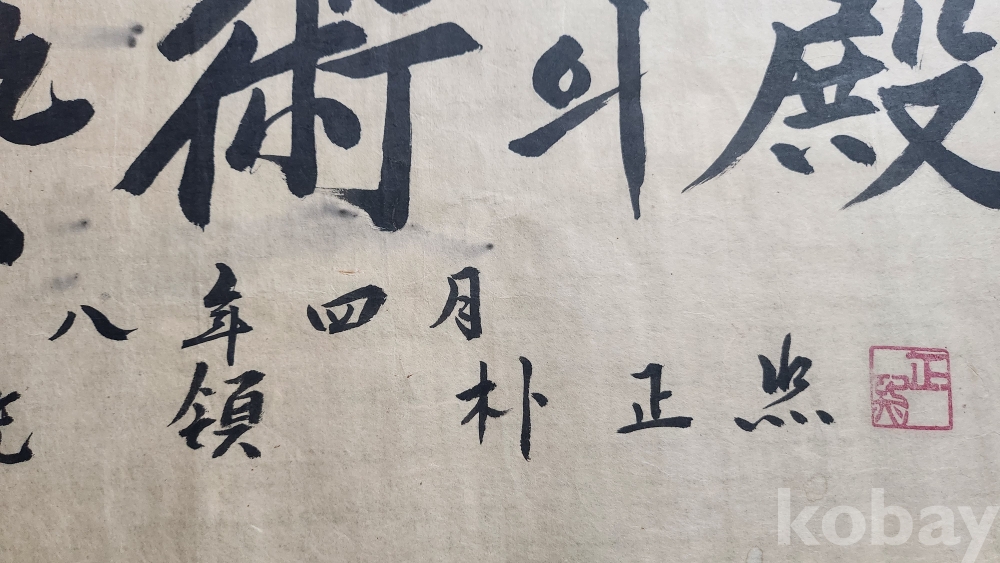 術의殿
八年四月
領 朴正熙
正
kobay